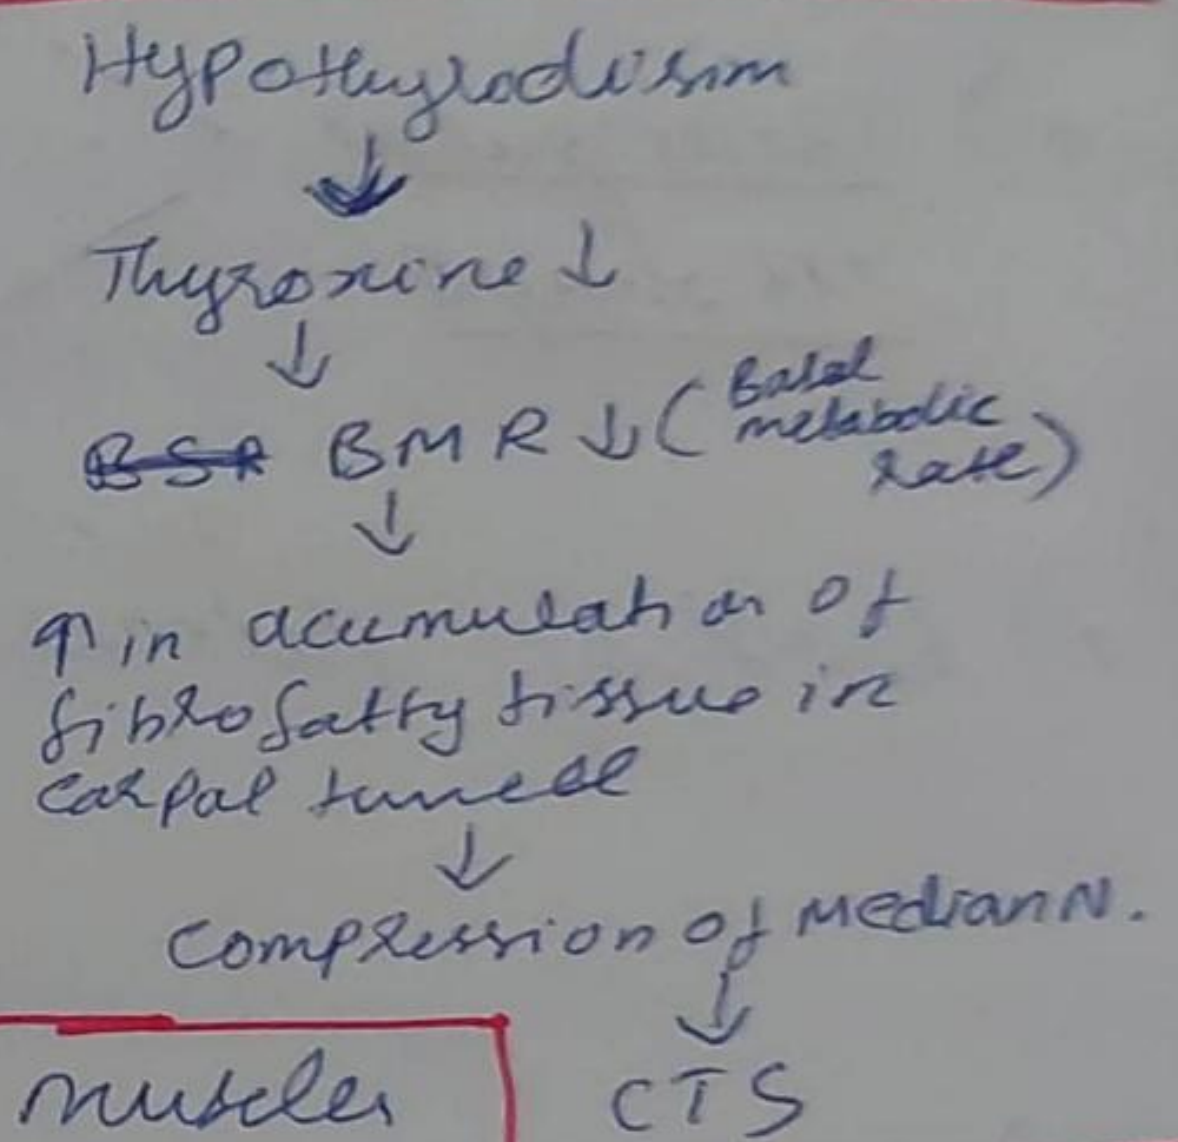 Hypothyrodisim
↓
Thyroxine ↓
↓
BSR BMR ↓ (Basal
metabolic
rate)
↓
↑ in acumulation of
fibrofatty tissue in
carpal tunell
↓
Compression of Median N.
↓
muscles CTS